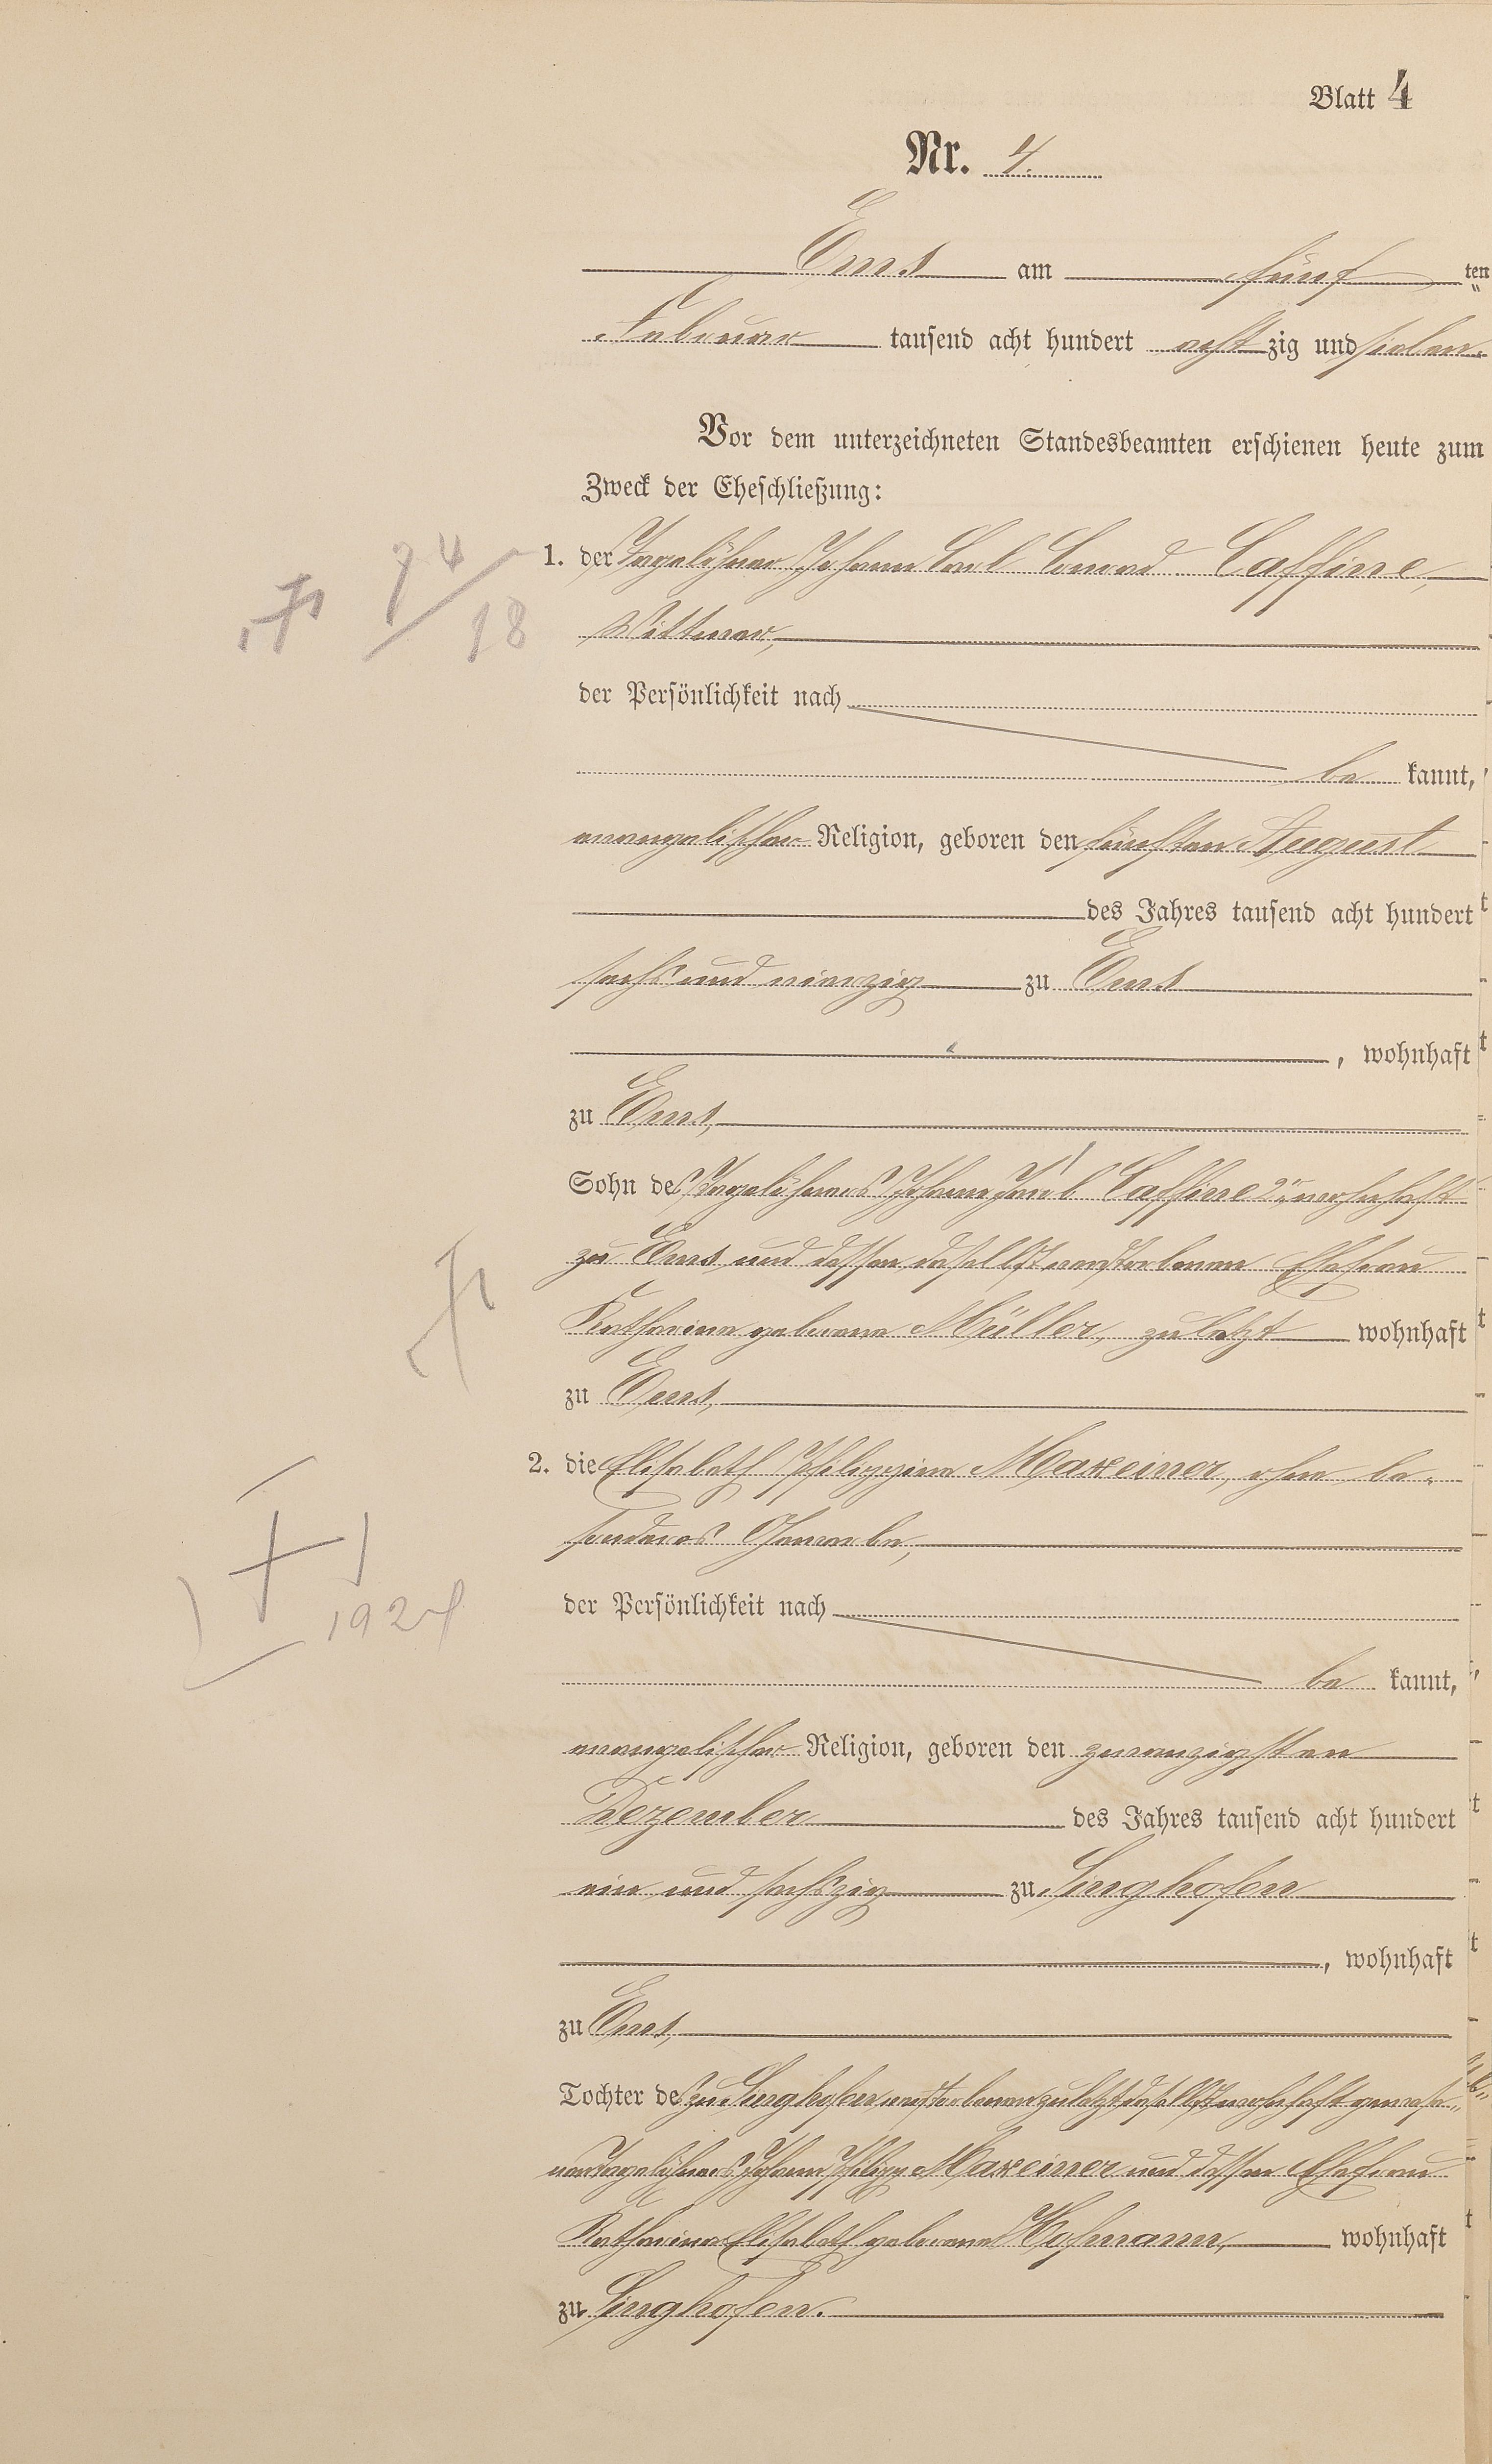 Blatt 4
Nr. 4.
Ems am fünf ten
Februar tausend acht hundert acht zig und sieben.
Vor dem unterzeichneten Standesbeamten erschienen heute zum
Zweck der Eheschließung:
1. der Tagelöhner Johann Carl Conrad Caffine,
Wittwer,
der Persönlichkeit nach
be kannt,
evangelischer Religion, geboren den fünften August
des Jahres tausend acht hundert
sechs und vierzig zu Ems
, wohnhaft
zu Ems,
Sohn des Tagelöhners Johann Jacob Caffine 2r, wohnhaft
zu Ems und dessen daselbst verstorbenen Ehefrau
Katharina geborene Müller, zuletzt wohnhaft
zu Ems,
2. die Elisabeth Philippine Maxeiner, ohne be-
sonderes Gewerbe,
der Persönlichkeit nach
1924
be kannt,
evangelischer Religion, geboren den zwanzigsten
Dezember des Jahres tausend acht hundert
ein und sechszig zu Singhofen
, wohnhaft
zu Ems,
Tochter des zu Singhofen verstorbenen zuletzt daselbst wohnhaft gewese-
nen Tagelöhners Johann Philipp Maxeiner und dessen Ehefrau
Katharina Elisabeth geborene Hofmann, wohnhaft
zu Singhofen.